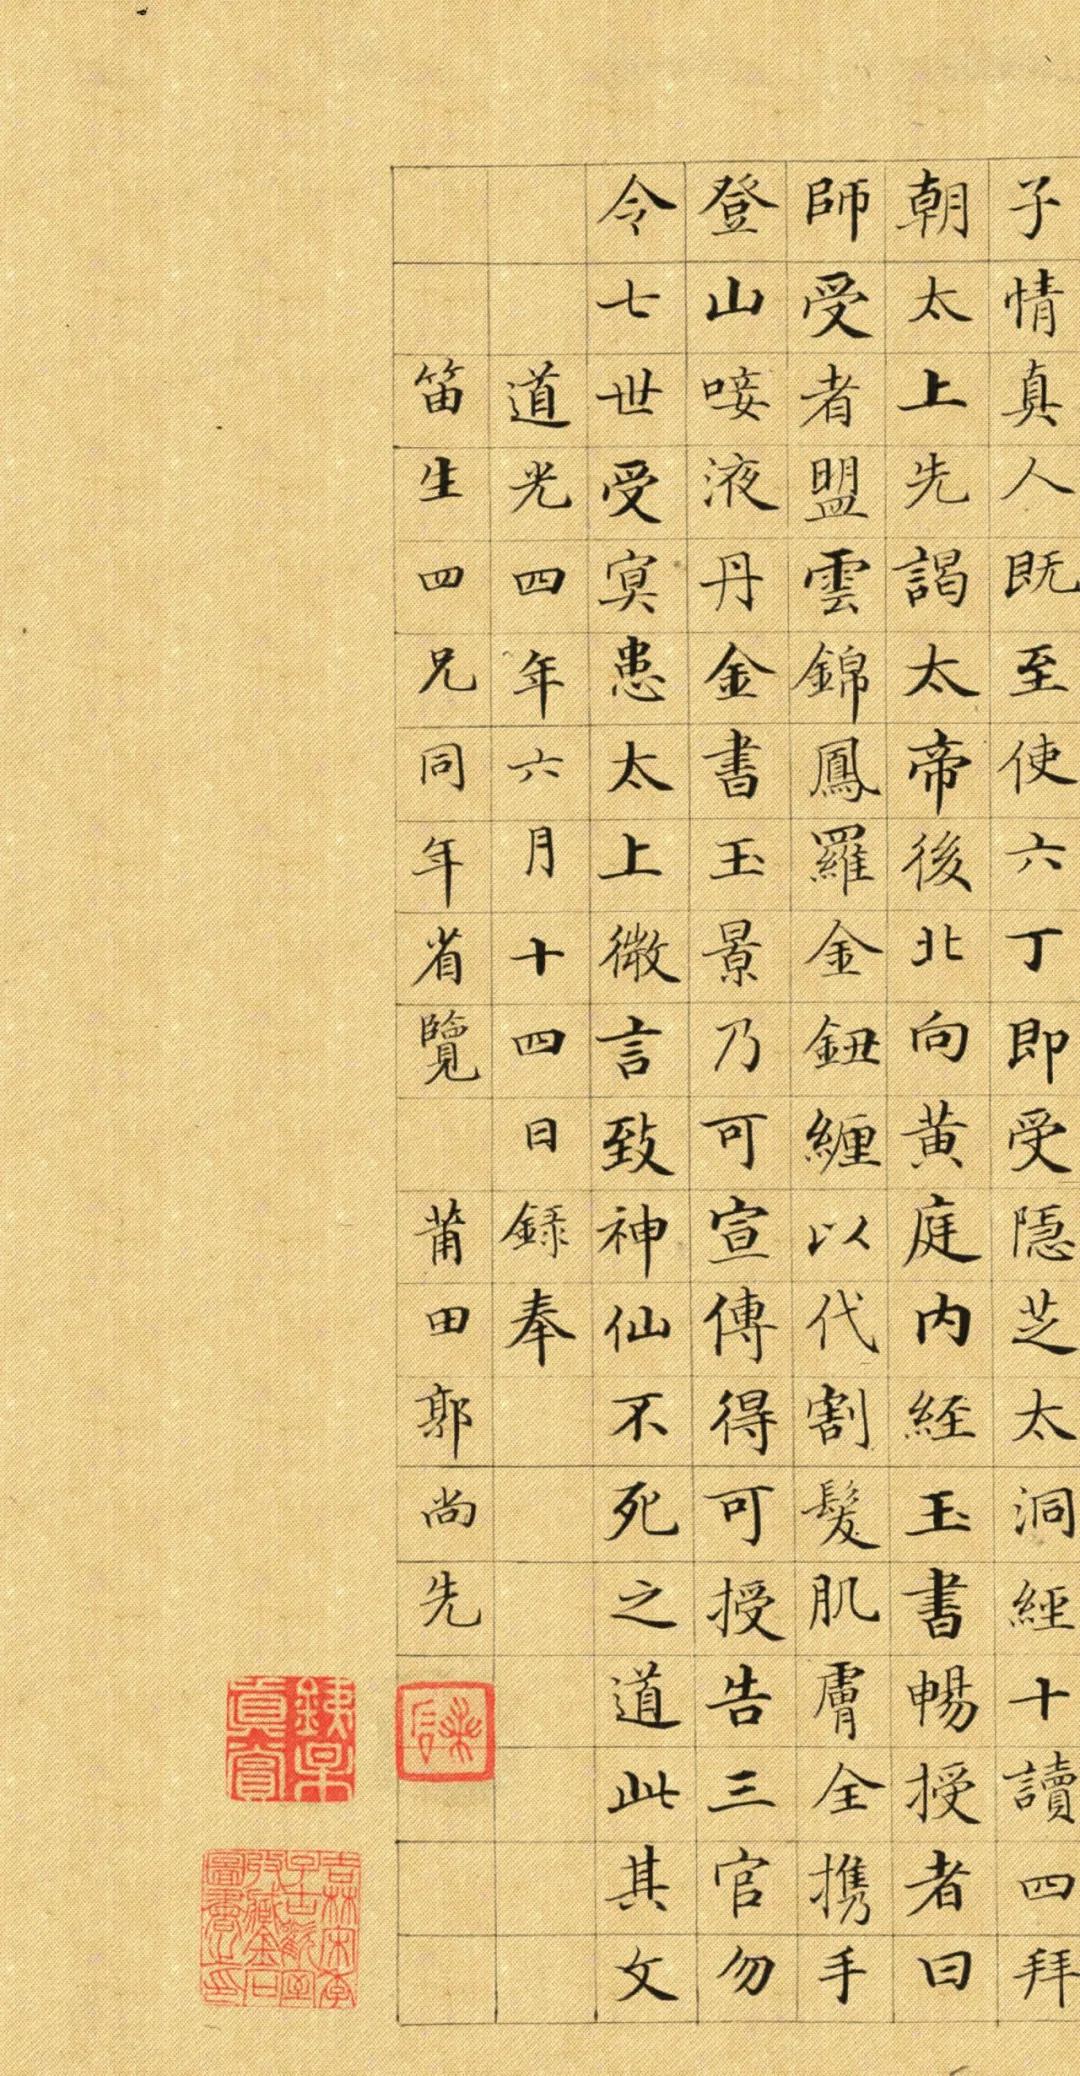 子情真人既至使六丁即受隱芝太洞經十讀四拜
朝太上先謁太帝後北向黃庭內經玉書暢授者曰
師受者盟雲錦鳳羅金鈕纏以代割髮肌膚全攜手
登山唼液丹金書玉景乃可宣傳得可授告三官勿
令七世受冥患太上微言致神仙不死之道此其文
道光四年六月十四日錄奉
笛生四兄同年省覽 莆田郭尚先
鐵某真賞
吉林宋季子古歡室收藏金石圖書之印